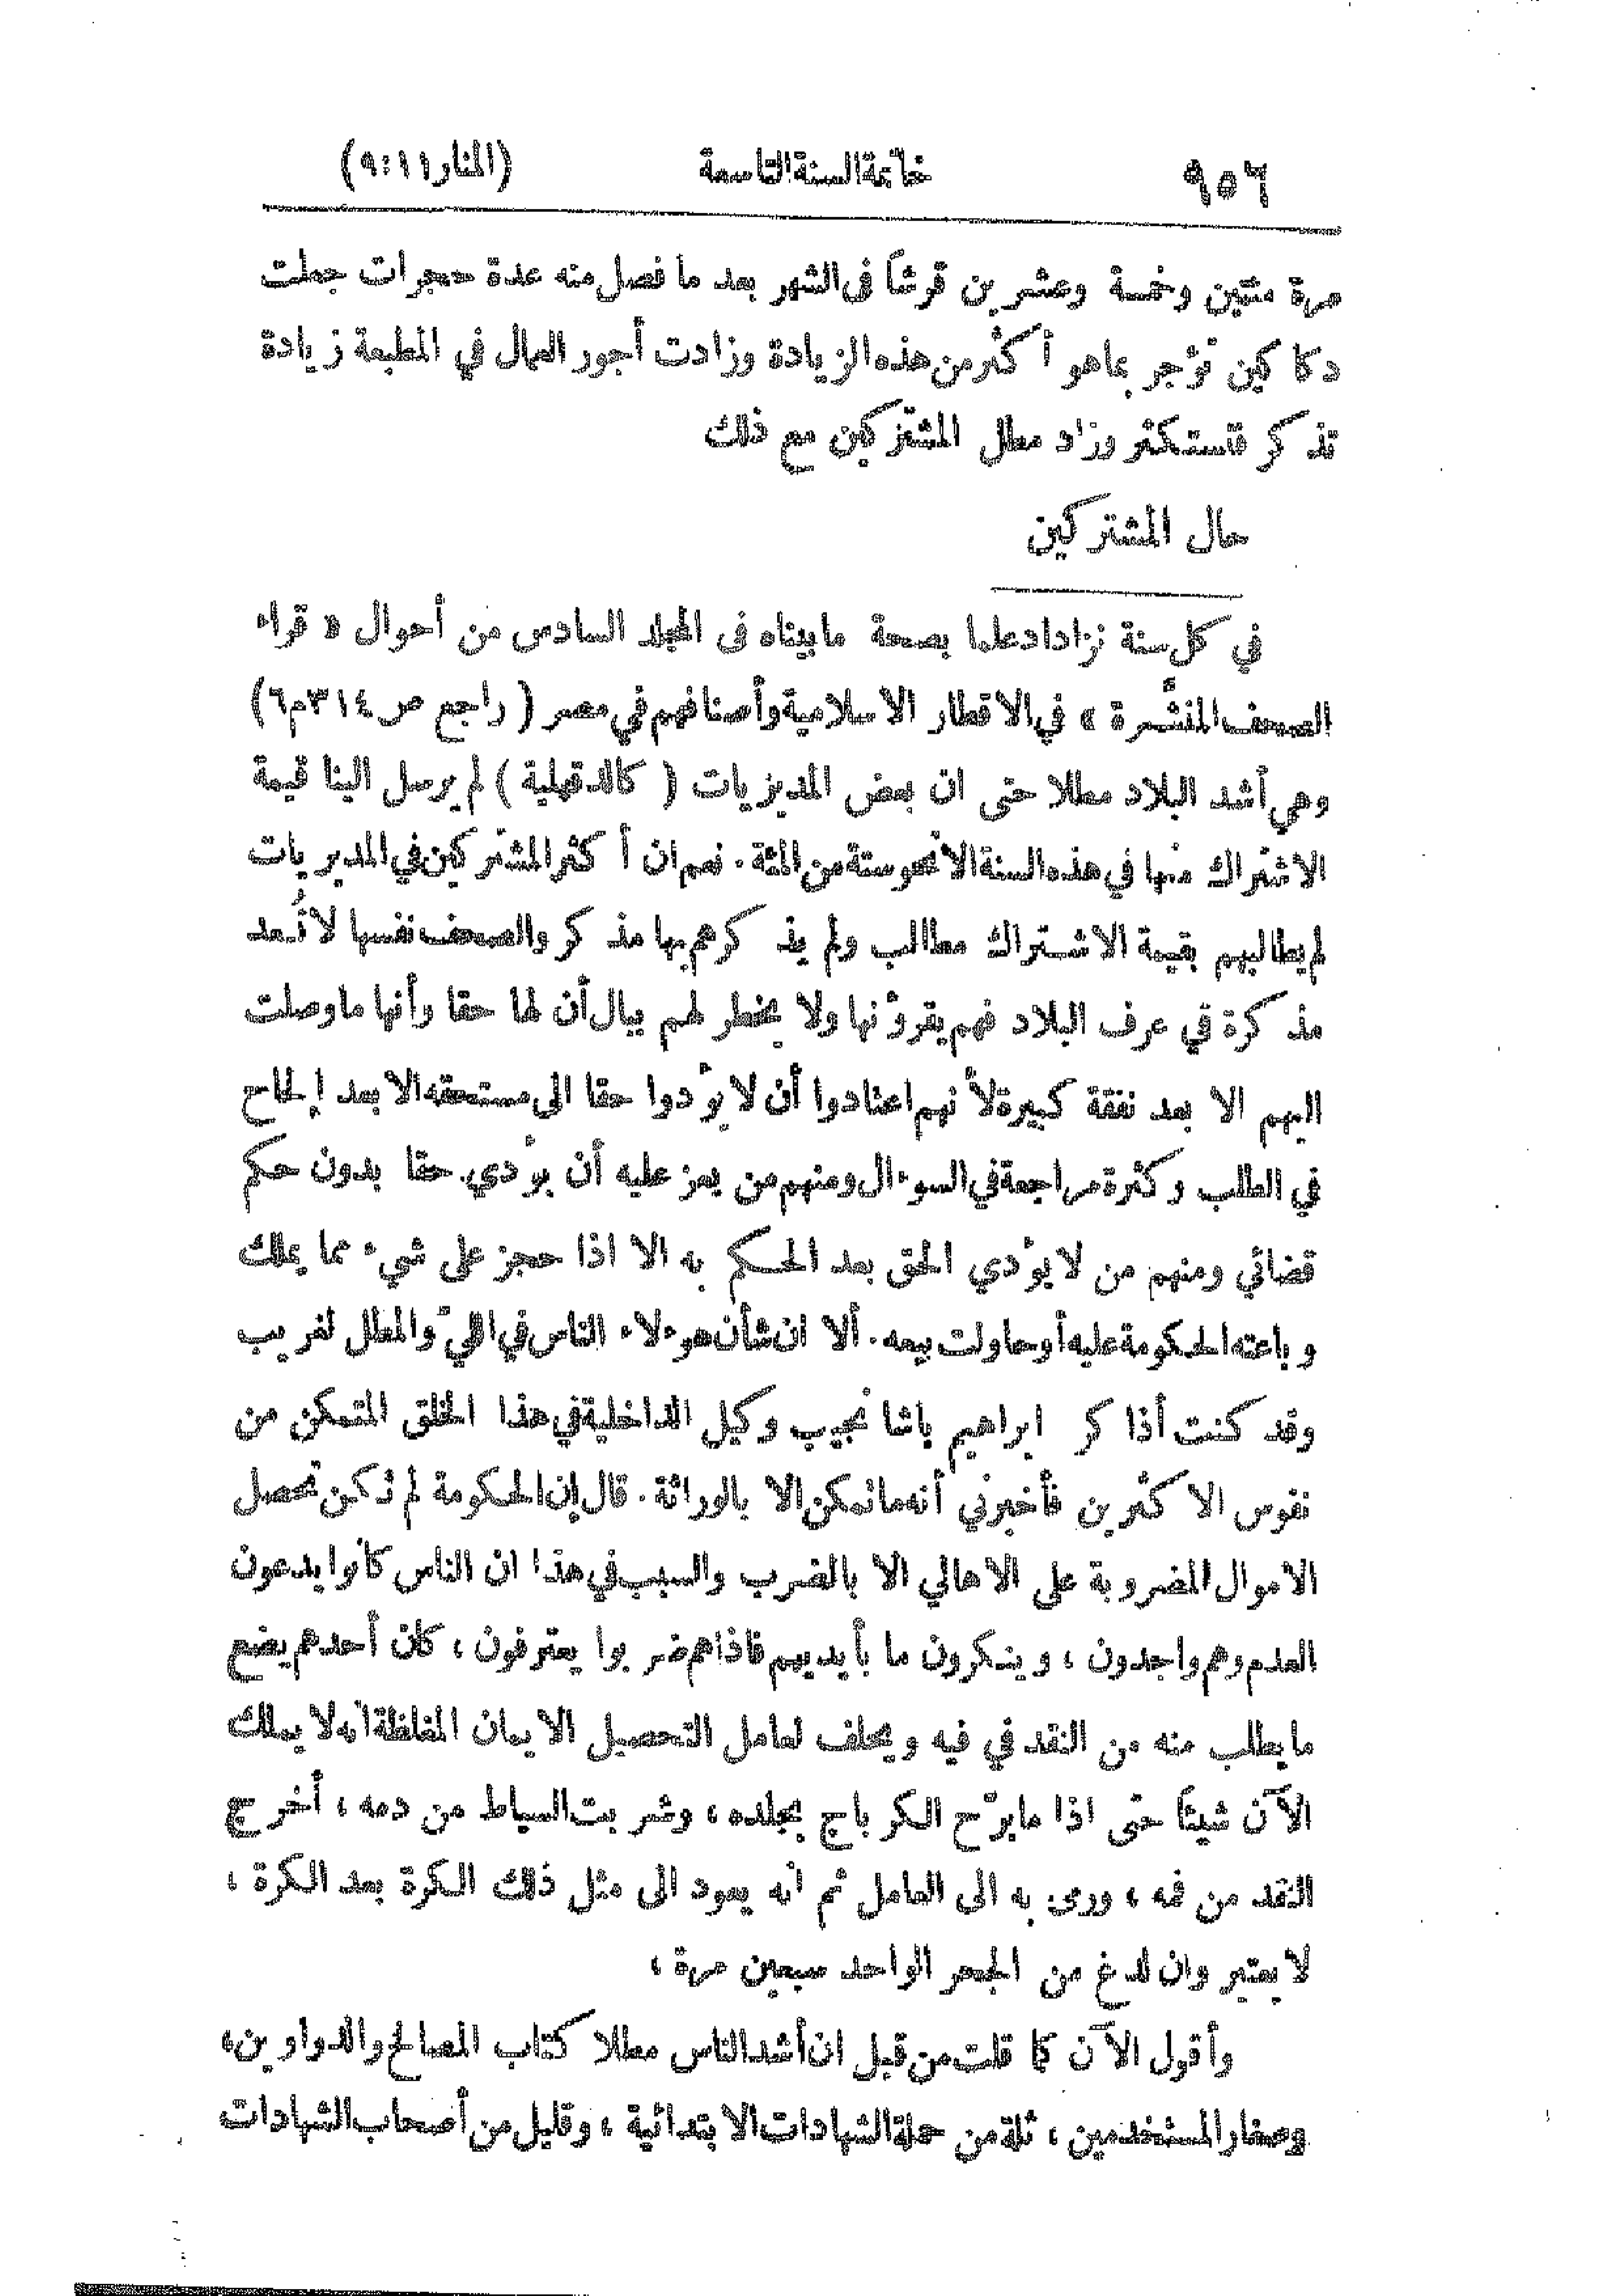 ٩٥٦ خاتمة السنة التاسعة (المنار ١١:٩)
مرة مئتين وخمسة وعشرين قرشاً في الشهر بعد ما فصل منه عدة حجرات جعلت
دكاكين تؤجر بما هو أكثر من هذه الزيادة وزادت أجور العمال في المطبعة زيادة
تذكر فتستكثر وزاد مطل المشتركين مع ذلك
حال المشتركين
في كل سنة نزداد علما بصحة ما بيناه في المجلد السادس من أحوال « قراء
الصحف المنشَّرة » في الاقطار الاسلامية وأصنافهم في مصر ( راجع ص ٣١٤ م ٦ )
وهي أشد البلاد مطلا حتى ان بعض المديريات ( كالدقهلية ) لم يرسل الينا قيمة
الاشتراك منها في هذه السنة الا نحو ستة من المئة . نعم ان أكثر المشتركين في المديريات
لم يطالبهم بقيمة الاشتراك مطالب ولم يذكرهم بها مذكر والصحف نفسها لا تُعد
مذكرة في عرف البلاد فهم يقرؤنها ولا يخطر لهم ببال أن لها حقا وأنها ما وصلت
اليهم الا بعد نفقة كبيرة لأنهم اعتادوا أن لا يؤدوا حقا الى مستحقه الا بعد إلحاح
في الطلب وكثرة مراجعة في السوءال ومنهم من يعز عليه أن يؤدي حقا بدون حكم
قضائي ومنهم من لا يؤدي الحق بعد الحكم به الا اذا حجز على شيء مما يملك
وباعته الحكومة عليه أو حاولت بيعه . ألا ان شأن هوءلاء الناس في الليّ والمطل لغريب
وقد كنت أذاكر ابراهيم باشا نجيب وكيل الداخلية في هذا الخلق المتمكن من
نفوس الاكثرين فأخبرني أنه ما تمكن الا بالوراثة . قال إن الحكومة لم تكن تحصل
الاموال المضروبة على الاهالي الا بالضرب والسبب في هذا ان الناس كانوا يدعون
العدم وهم واجدون ، وينكرون ما بأيديهم فاذا هم ضربوا يعترفون ، كان أحدهم يضع
ما يطلب منه من النقد في فيه ويحلف لعامل التحصيل الايمان المغلظة انه لا يملك
الآن شيئاً حتى اذا ما برّح الكرباج بجلده ، وشربت السياط من دمه ، أخرج
النقد من فمه ، ورمى به الى العامل ثم انه يعود الى مثل ذلك الكرة بعد الكرة ،
لا يعتبر وان لدغ من الجحر الواحد سبعين مرة ،
وأقول الآن كما قلت من قبل ان أشد الناس مطلا كتاب المصالح والدواوين ،
وصغار المستخدمين ، ثلة من حملة الشهادات الابتدائية ، وقليل من أصحاب الشهادات